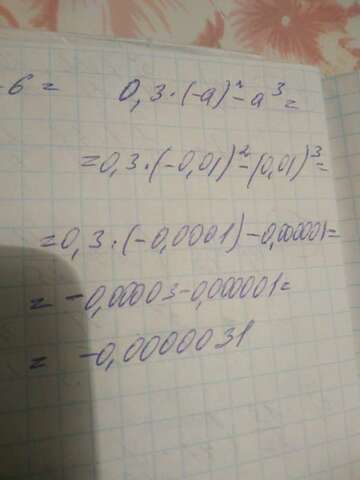 -6=
0,3·(-a)²-a³=
=0,3·(-0,01)²-(0,01)³=
=0,3·(-0,0001)-0,000001=
=-0,00003-0,000001=
=-0,0000031